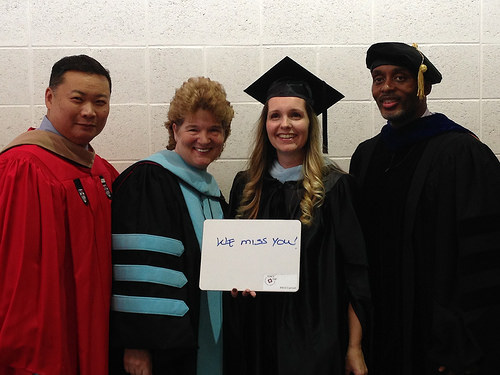 WE miss YOU!